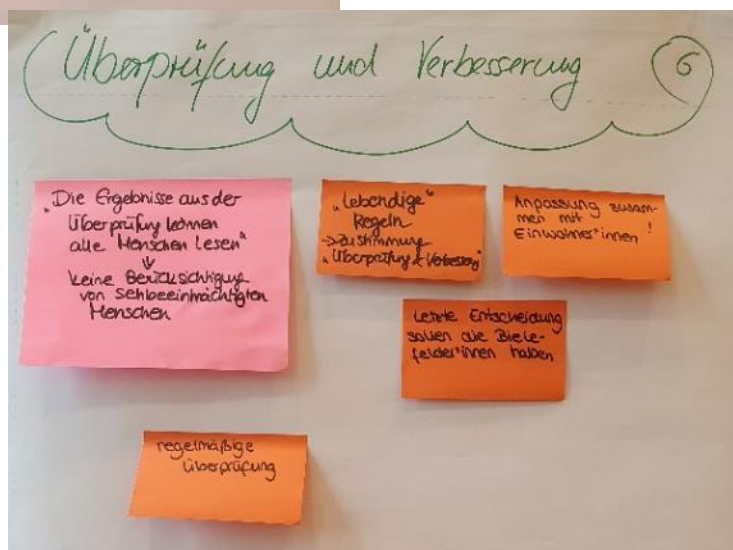 Überprüfung und Verbesserung 6
"Die Ergebnisse aus der
Überprüfung können
alle Menschen lesen"
↓
keine Berücksichtigung
von sehbeeinträchtigten
Menschen
"lebendige"
Regeln
→ Zustimmung
"Überprüfung & Verbesserung"
Anpassung zusam-
men mit
Einwohner*innen !
Letzte Entscheidung
sollen die Biele-
felder*innen haben
regelmäßige
Überprüfung